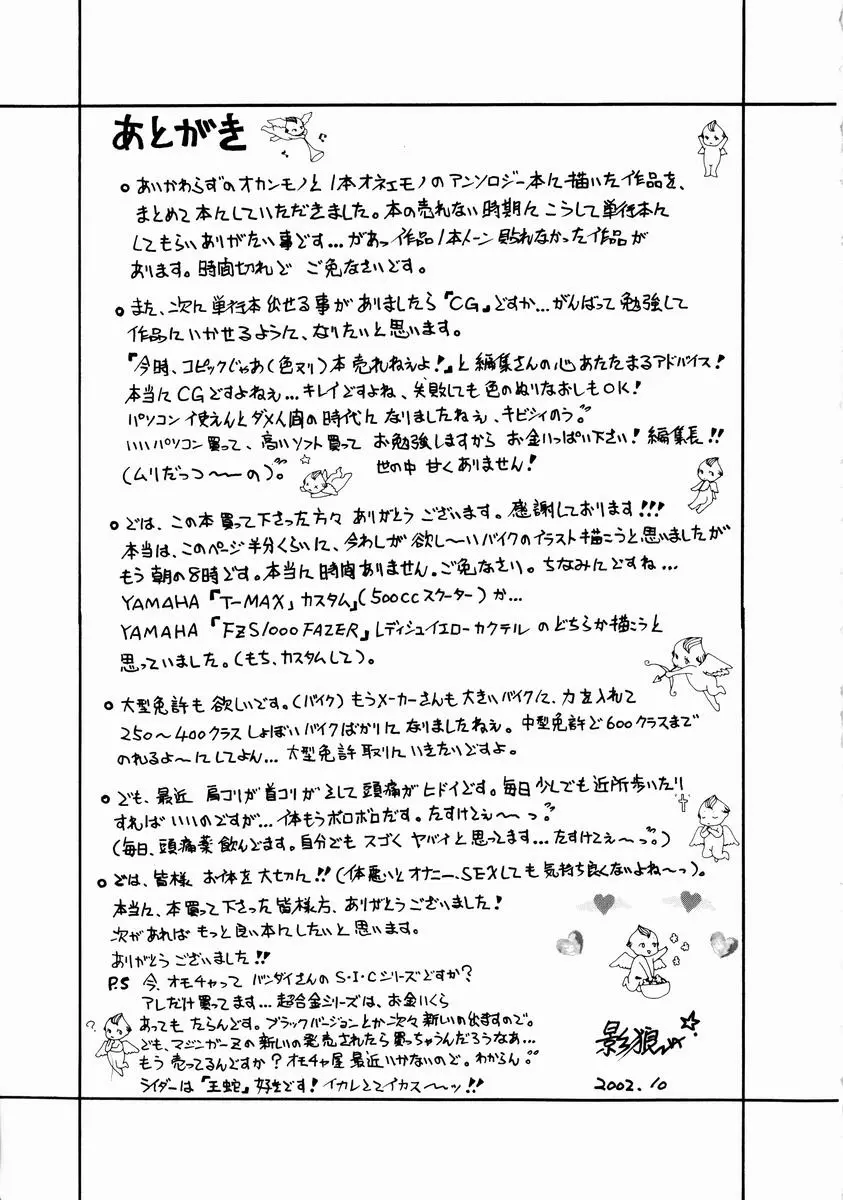 あとがき
○あいかわらずのオカンモノと1本オネエモノのアンソロジー本に描いた作品を、
まとめて本にしていただきました。本の売れない時期にこうして単行本に
してもらいありがたい事です…があっ作品1本トーン貼れなかった作品が
あります。時間切れで ご免なさいです。
○また、次に単行本出せる事がありましたら『CG』ですか…がんばって勉強して
作品にいかせるように、なりたいと思います。
『今時、コピックじゃあ(色ヌリ)本売れねえよ!』と編集さんの心あたたまるアドバイス!
本当にCGですよねぇ…キレイですよね、失敗しても色のぬりなおしもOK!
パソコン使えんとダメ人間の時代になりましたねぇ、キビシイのう。
いいパソコン買って、高いソフト買って お勉強しますから お金いっぱい下さい!編集長!!
(ムリだっつ〜〜の)。 世の中 甘くありません!
○では、この本買って下さった方々 ありがとうございます。感謝しております!!!
本当は、このページ半分くらいに、今わしが欲し〜いバイクのイラスト描こうと思いましたが
もう朝の8時です。本当に時間ありません。ご免なさい。ちなみにですね…
YAMAHA『T-MAX』カスタム(500ccスクーター)か…
YAMAHA『FZS1000FAZER』レディシュイエローカクテル のどちらか描こうと
思っていました。(もち、カスタムして)。
○大型免許も欲しいです。(バイク)もうメーカーさんも大きいバイクに、力を入れて
250〜400クラスしょぼいバイクばかりになりましたねぇ。中型免許で600クラスまで
のれるよ〜にしてよん…大型免許取りにいきたいですよ。
○でも、最近 肩コリが首コリがそして頭痛がヒドイです。毎日少しでも近所歩いたり
すればいいのですが…体もうボロボロだす。たすけてぇ〜〜っ。
(毎日、頭痛薬飲んでます。自分でもスゴくヤバイと思ってます…たすけてぇ〜っ。)
○では、皆様 お体を大切に!!(体悪いとオナニー、SEXしても気持ち良くないよね〜っ)。
本当に、本買って下さった皆様方、ありがとうございました!
次があればもっと良い本にしたいと思います。
ありがとうございました!!
P.S 今、オモチャってバンダイさんのS・I・Cシリーズですか?
アレだけ買ってます…超合金シリーズは、お金いくら
あってもたらんです。ブラックバージョンとか次々新しいの出ますので。
でも、マジンガーZの新しいの発売されたら買っちゃうんだろうなあ…
もう売ってるんですか?オモチャ屋最近いかないので。わからん。
ライダーは『王蛇』好きです!イカレててイカス〜〜ッ!!
?
影狼
2002.10